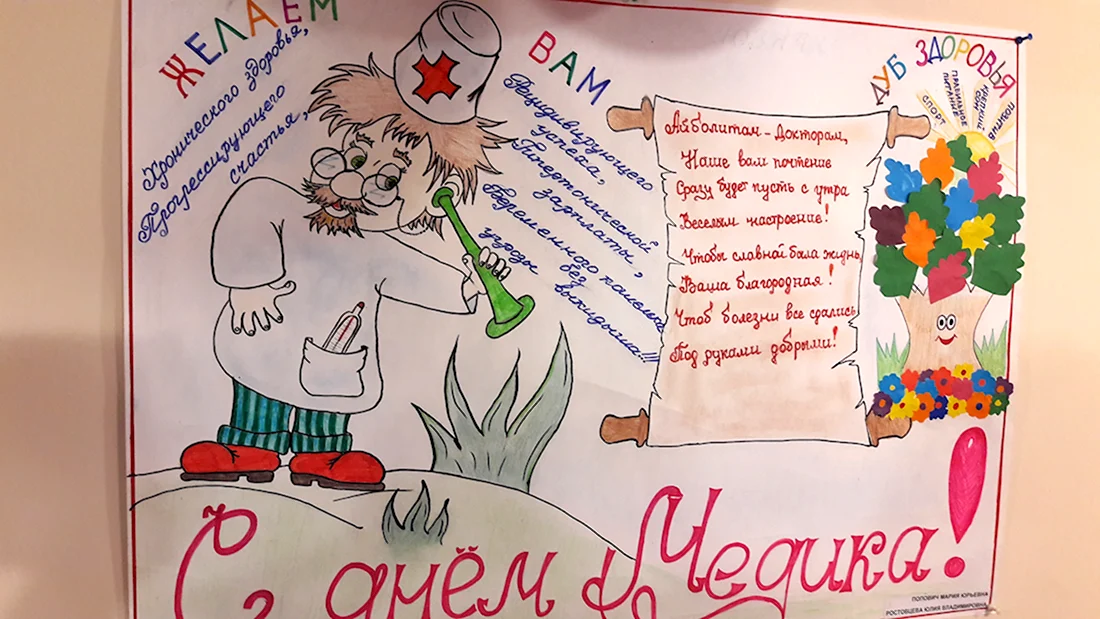 ЖЕЛАЕМ
ВАМ
Хронического здоровья,
Прогрессирующего
счастья,
Рецидивирующего
успеха,
Гипертонической
зарплаты,
беременного кошелька
без
угрозы выкидыша!!!
Айболитам - Докторам,
Наше вам почтение
Сразу будет пусть с утра
Веселым настроение!
Чтобы славной была жизнь
Ваша благородная!
Чтоб болезни все сдались
Под руками добрыми!
ДУБ ЗДОРОВЬЯ
СПОРТ
ПРАВИЛЬНОЕ
ПИТАНИЕ
КРЕПКИЙ
СОН
ПОЗИТИВ
С днём Медика!
ПОПОВИЧ МАРИЯ ЮРЬЕВНА
РОСТОВЦЕВА ЮЛИЯ ВЛАДИМИРОВНА